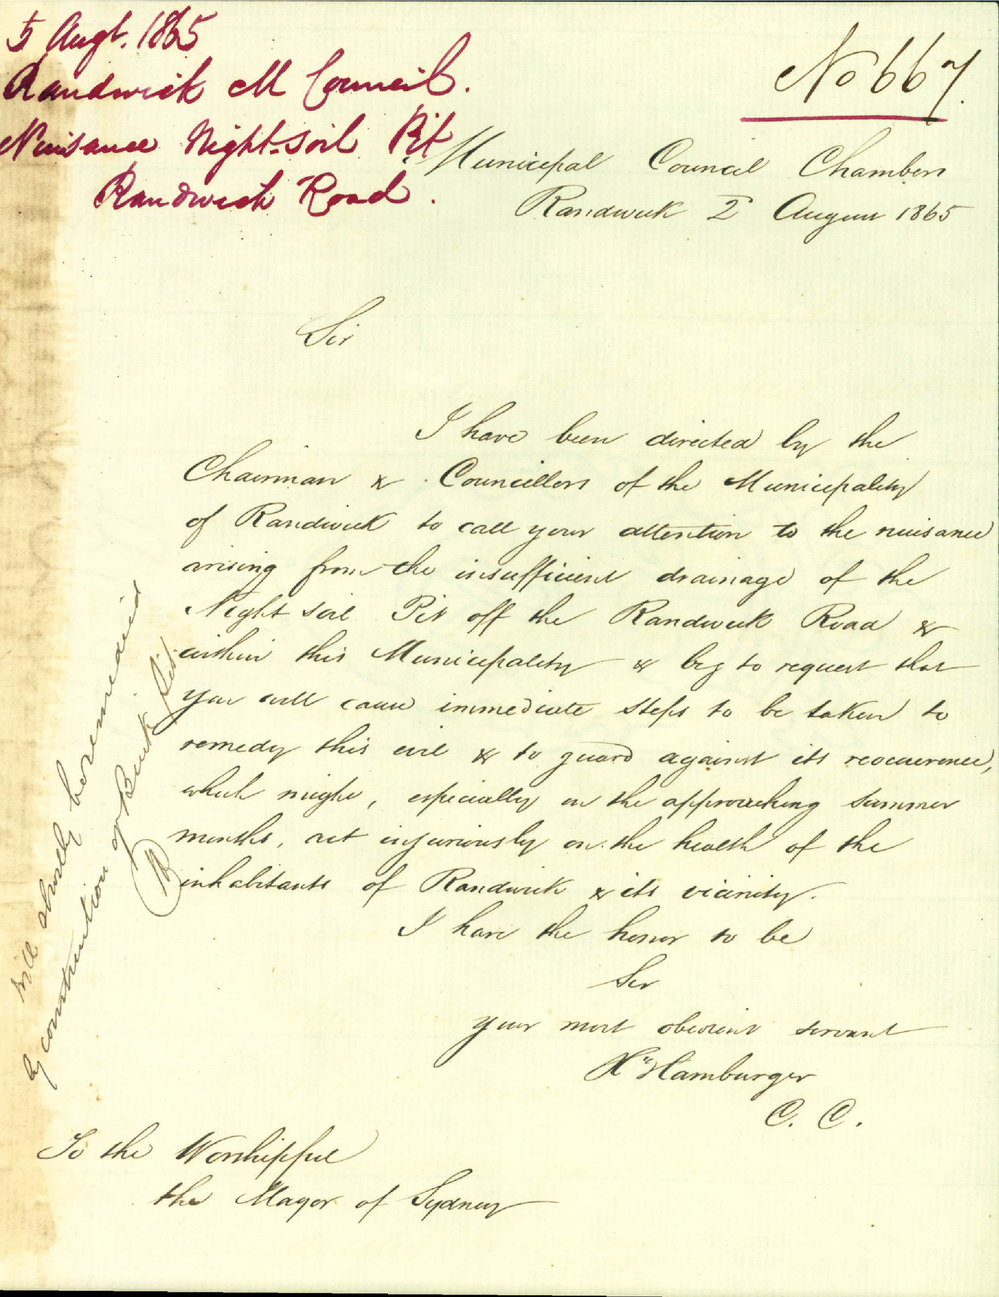 5 Augt. 1865
Randwick M Council.
Nuisance Night-soil Pit
Randwick Road.
No 667.
Municipal Council Chambers
Randwick 2 August 1865
Sir
I have been directed by the
Chairman & Councillors of the Municipality
of Randwick to call your attention to the nuisance
arising from the insufficient drainage of the
Night Soil Pit off the Randwick Road &
within this Municipality & beg to request that
you will cause immediate steps to be taken to
remedy this evil & to guard against its reocurrence,
which might, especially in the approaching summer
months, act injuriously on the health of the
inhabitants of Randwick & its vicinity.
I have the honor to be
Sir
your most obedient servant
Hy Hamburger
C. C.
To the Worshipful
the Mayor of Sydney
will shortly be remedied
by construction of Brick Pit